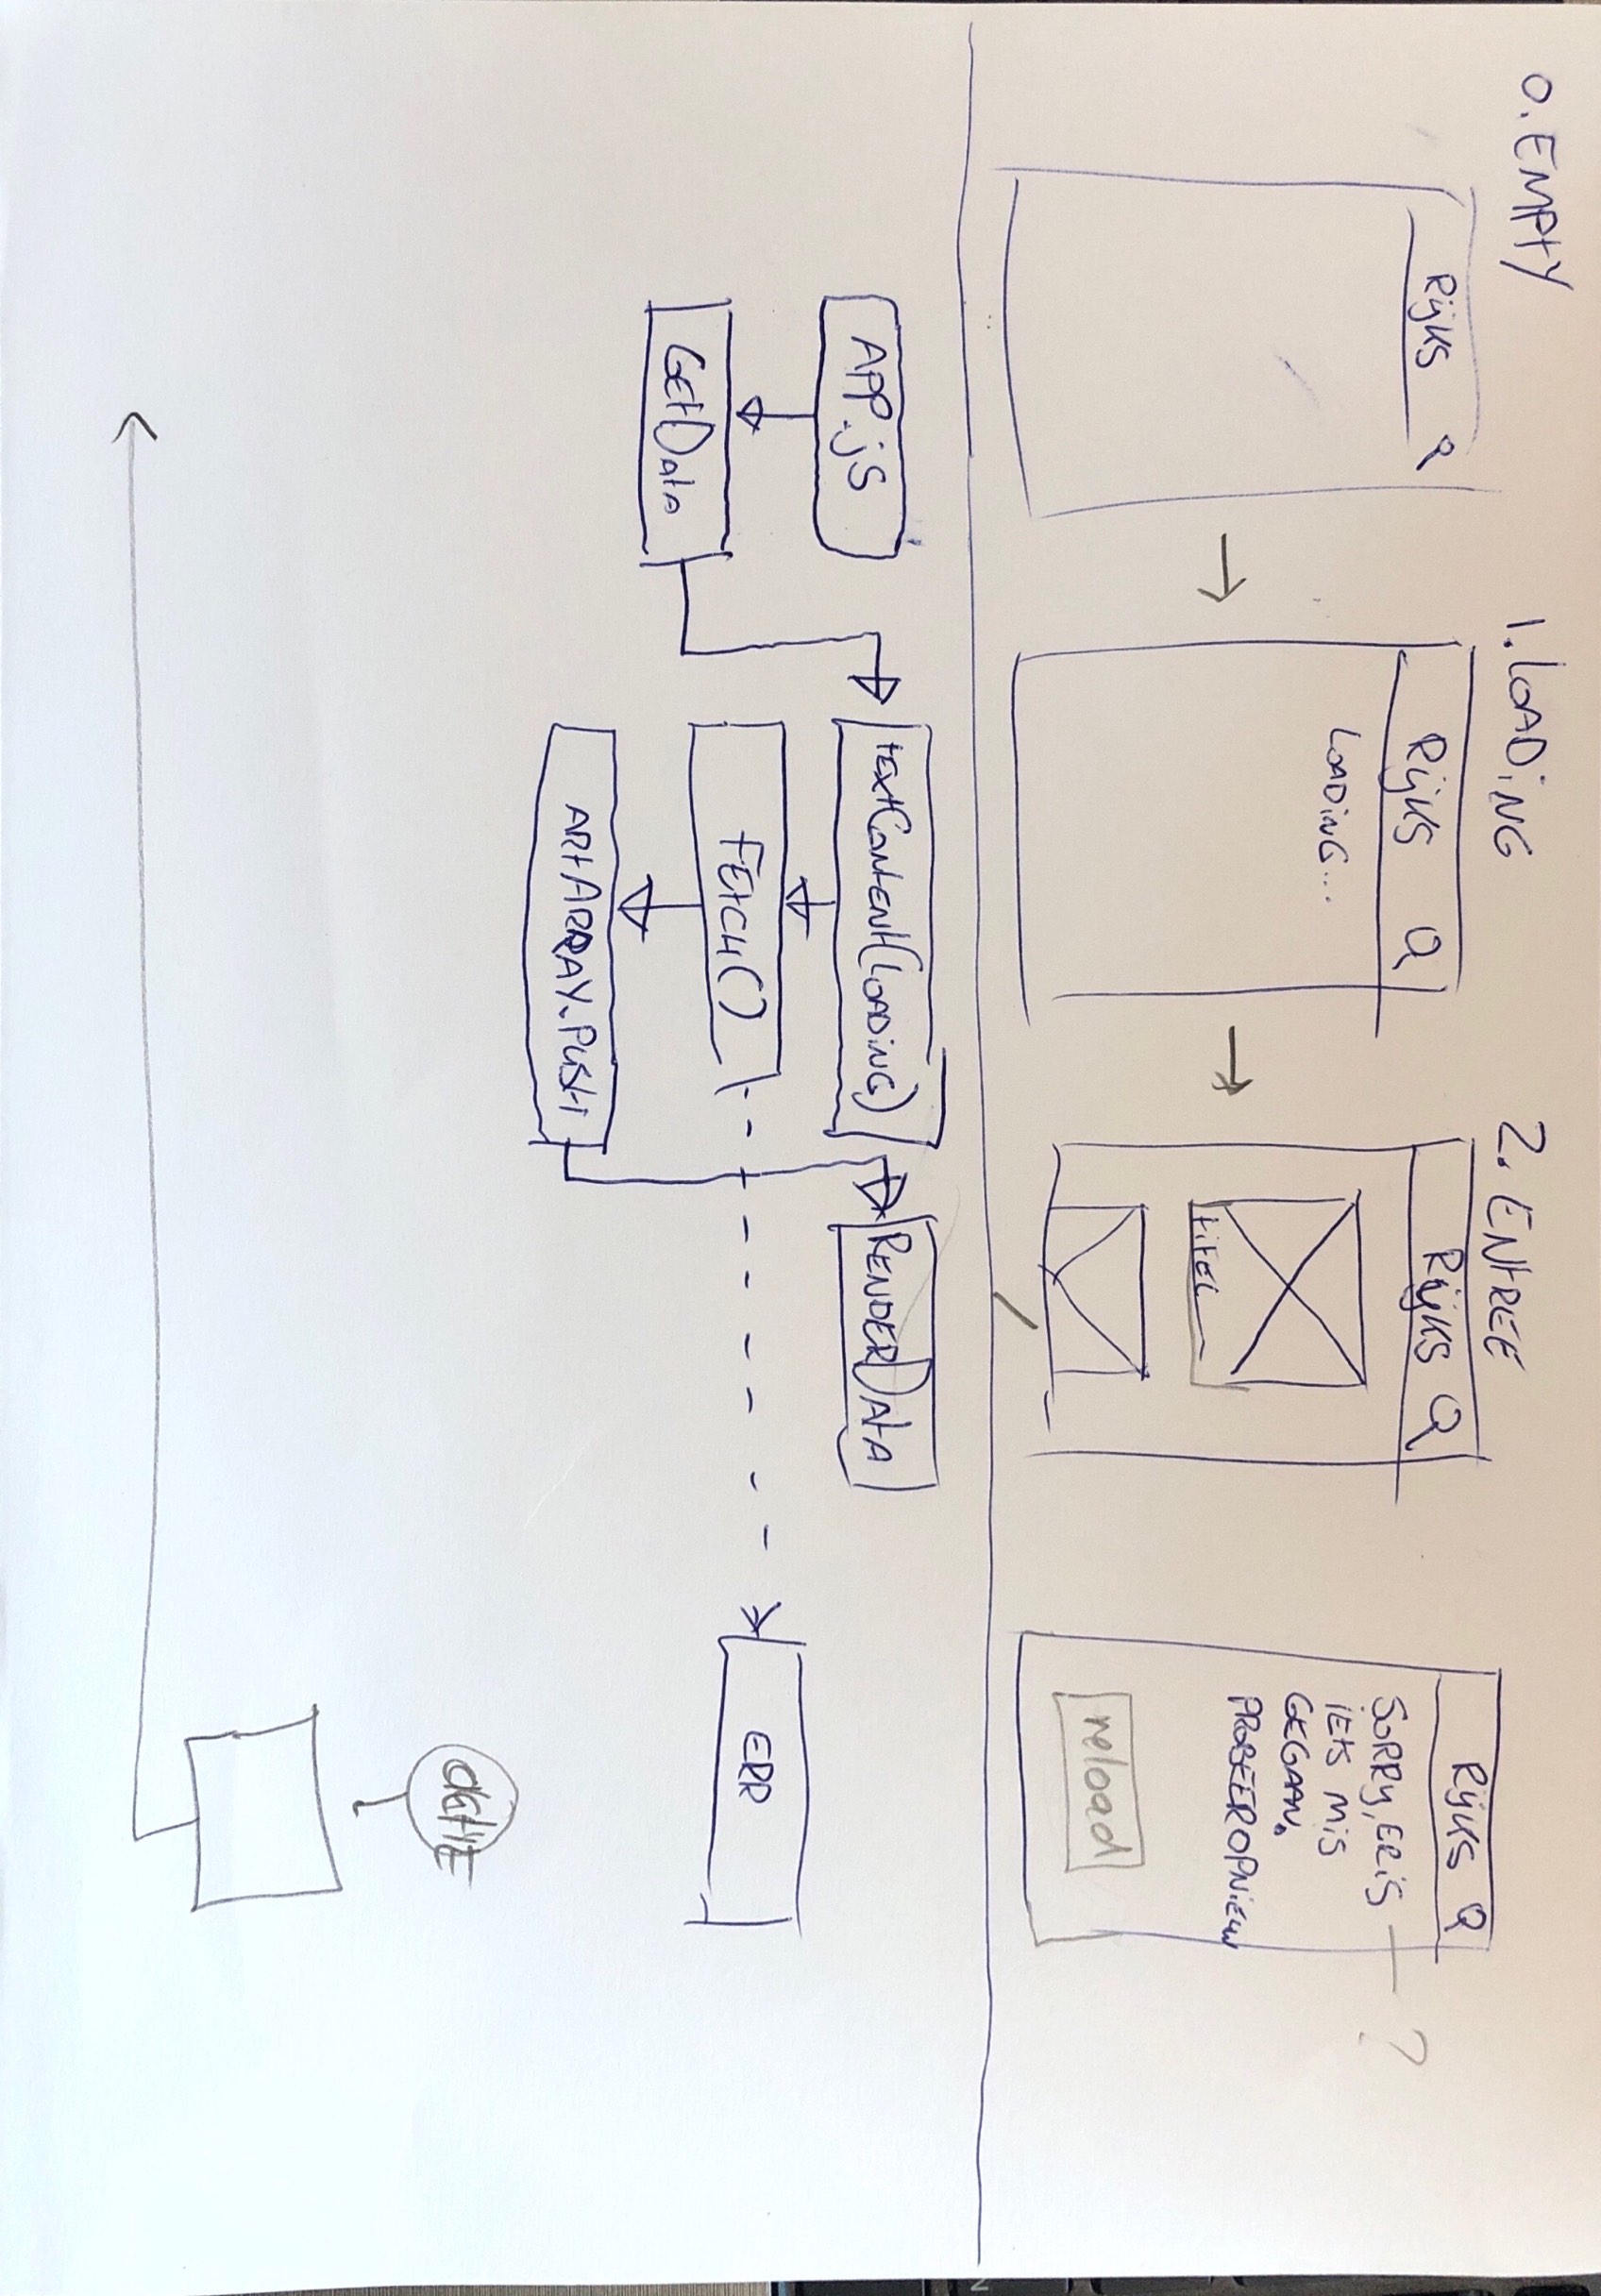 0. EMPTY
Rijks
1. LOADING
Rijks
LOADING...
2. ENTREE
Rijks
titEL
Rijks
SORRY, ER iS
iEts Mis
GEGAAN.
PROBEER OPNiEUW
reload
?
APP.jS
GEtData
tExtContENt(LOADiNG)
FEtCH()
ARtARRAY.PUSH
RENDERDAtA
ERR